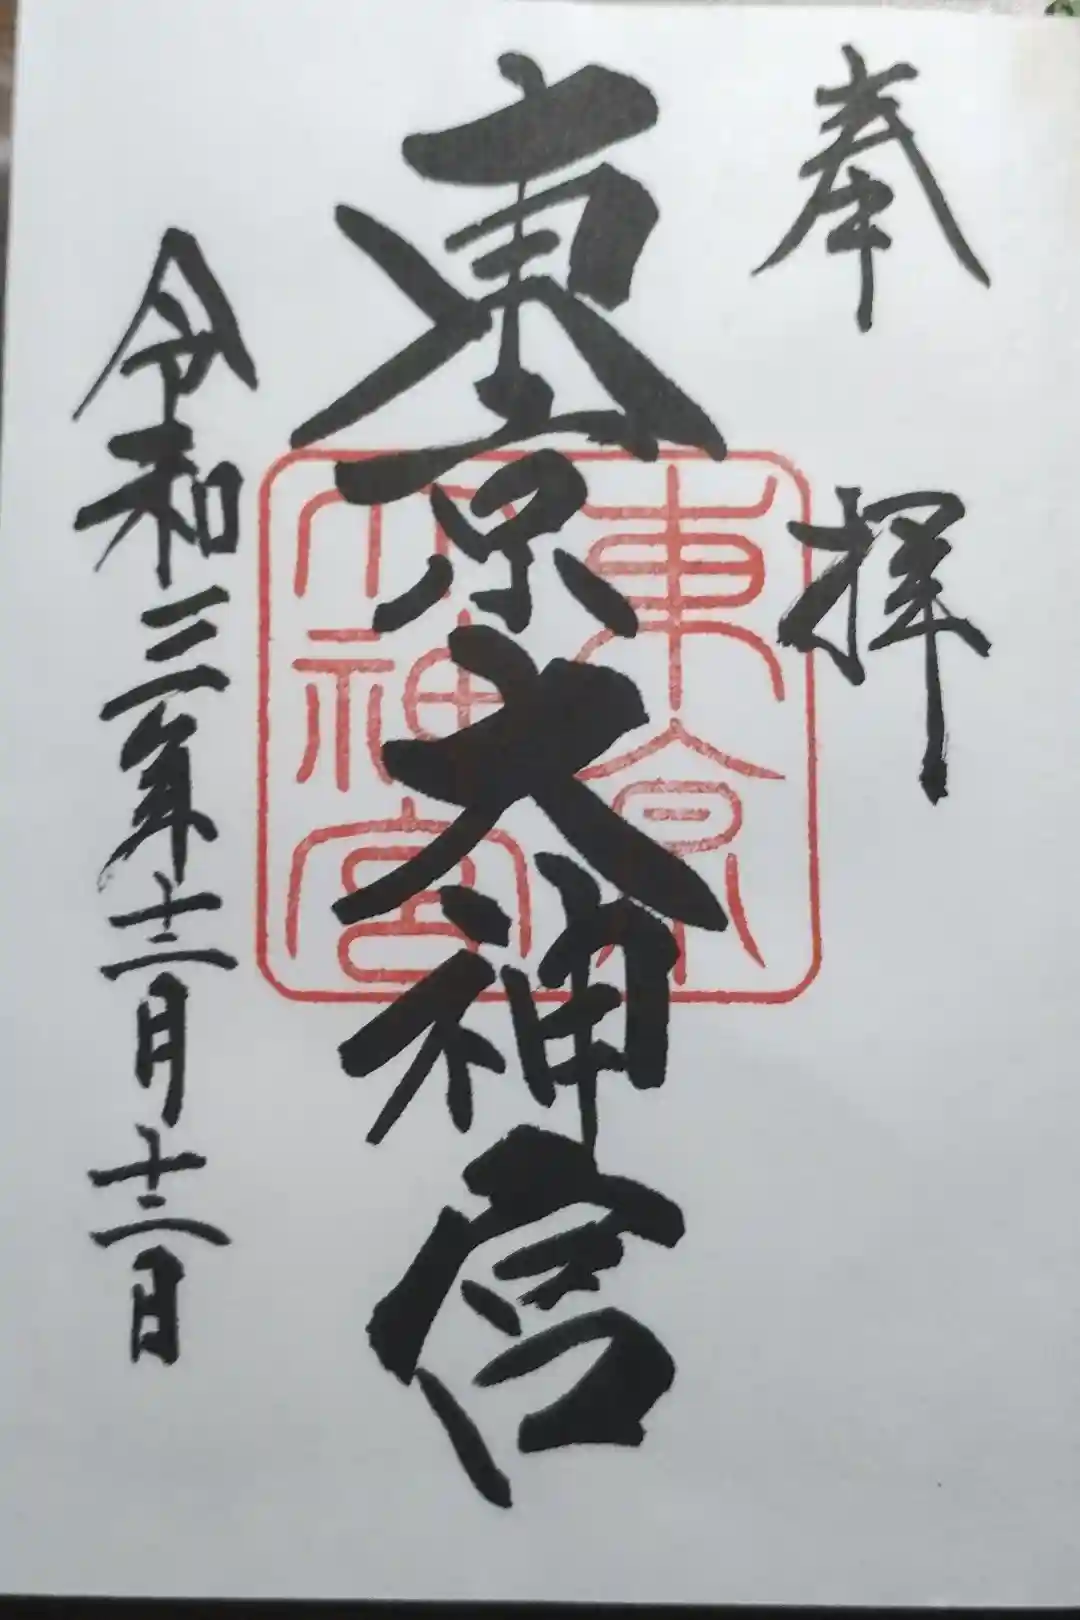 奉拝
東京大神宮
東京
大神宮
令和三年十二月十二日